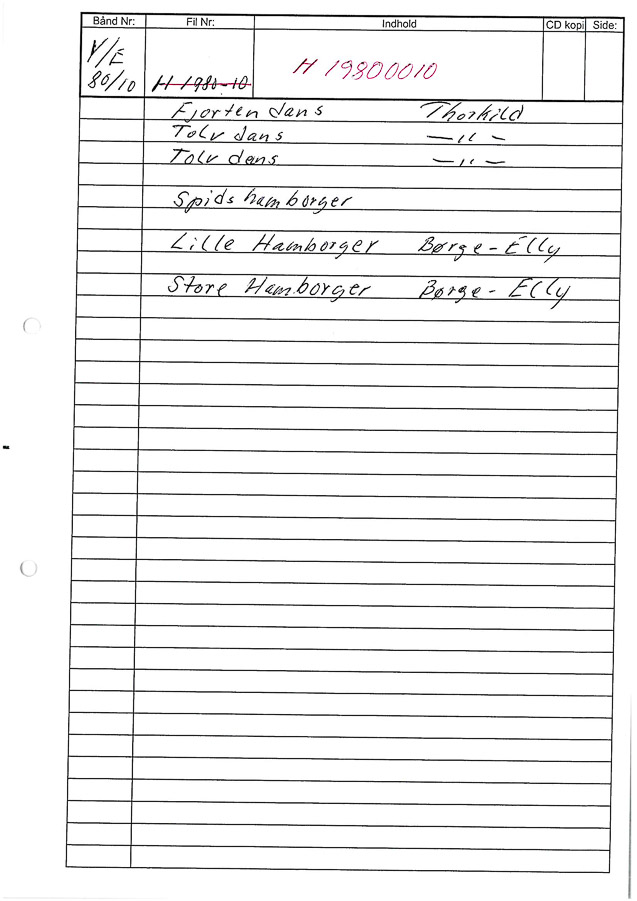 Bånd Nr: Fil Nr: Indhold CD kopi Side:
Y/E
80/10 H 1980-10 H 19800010
Fjorten dans Thorkild
Tolv dans —〃—
Tolv dans —〃—
Spids hamborger
Lille Hamborger Børge-Elly
Store Hamborger Børge-Elly